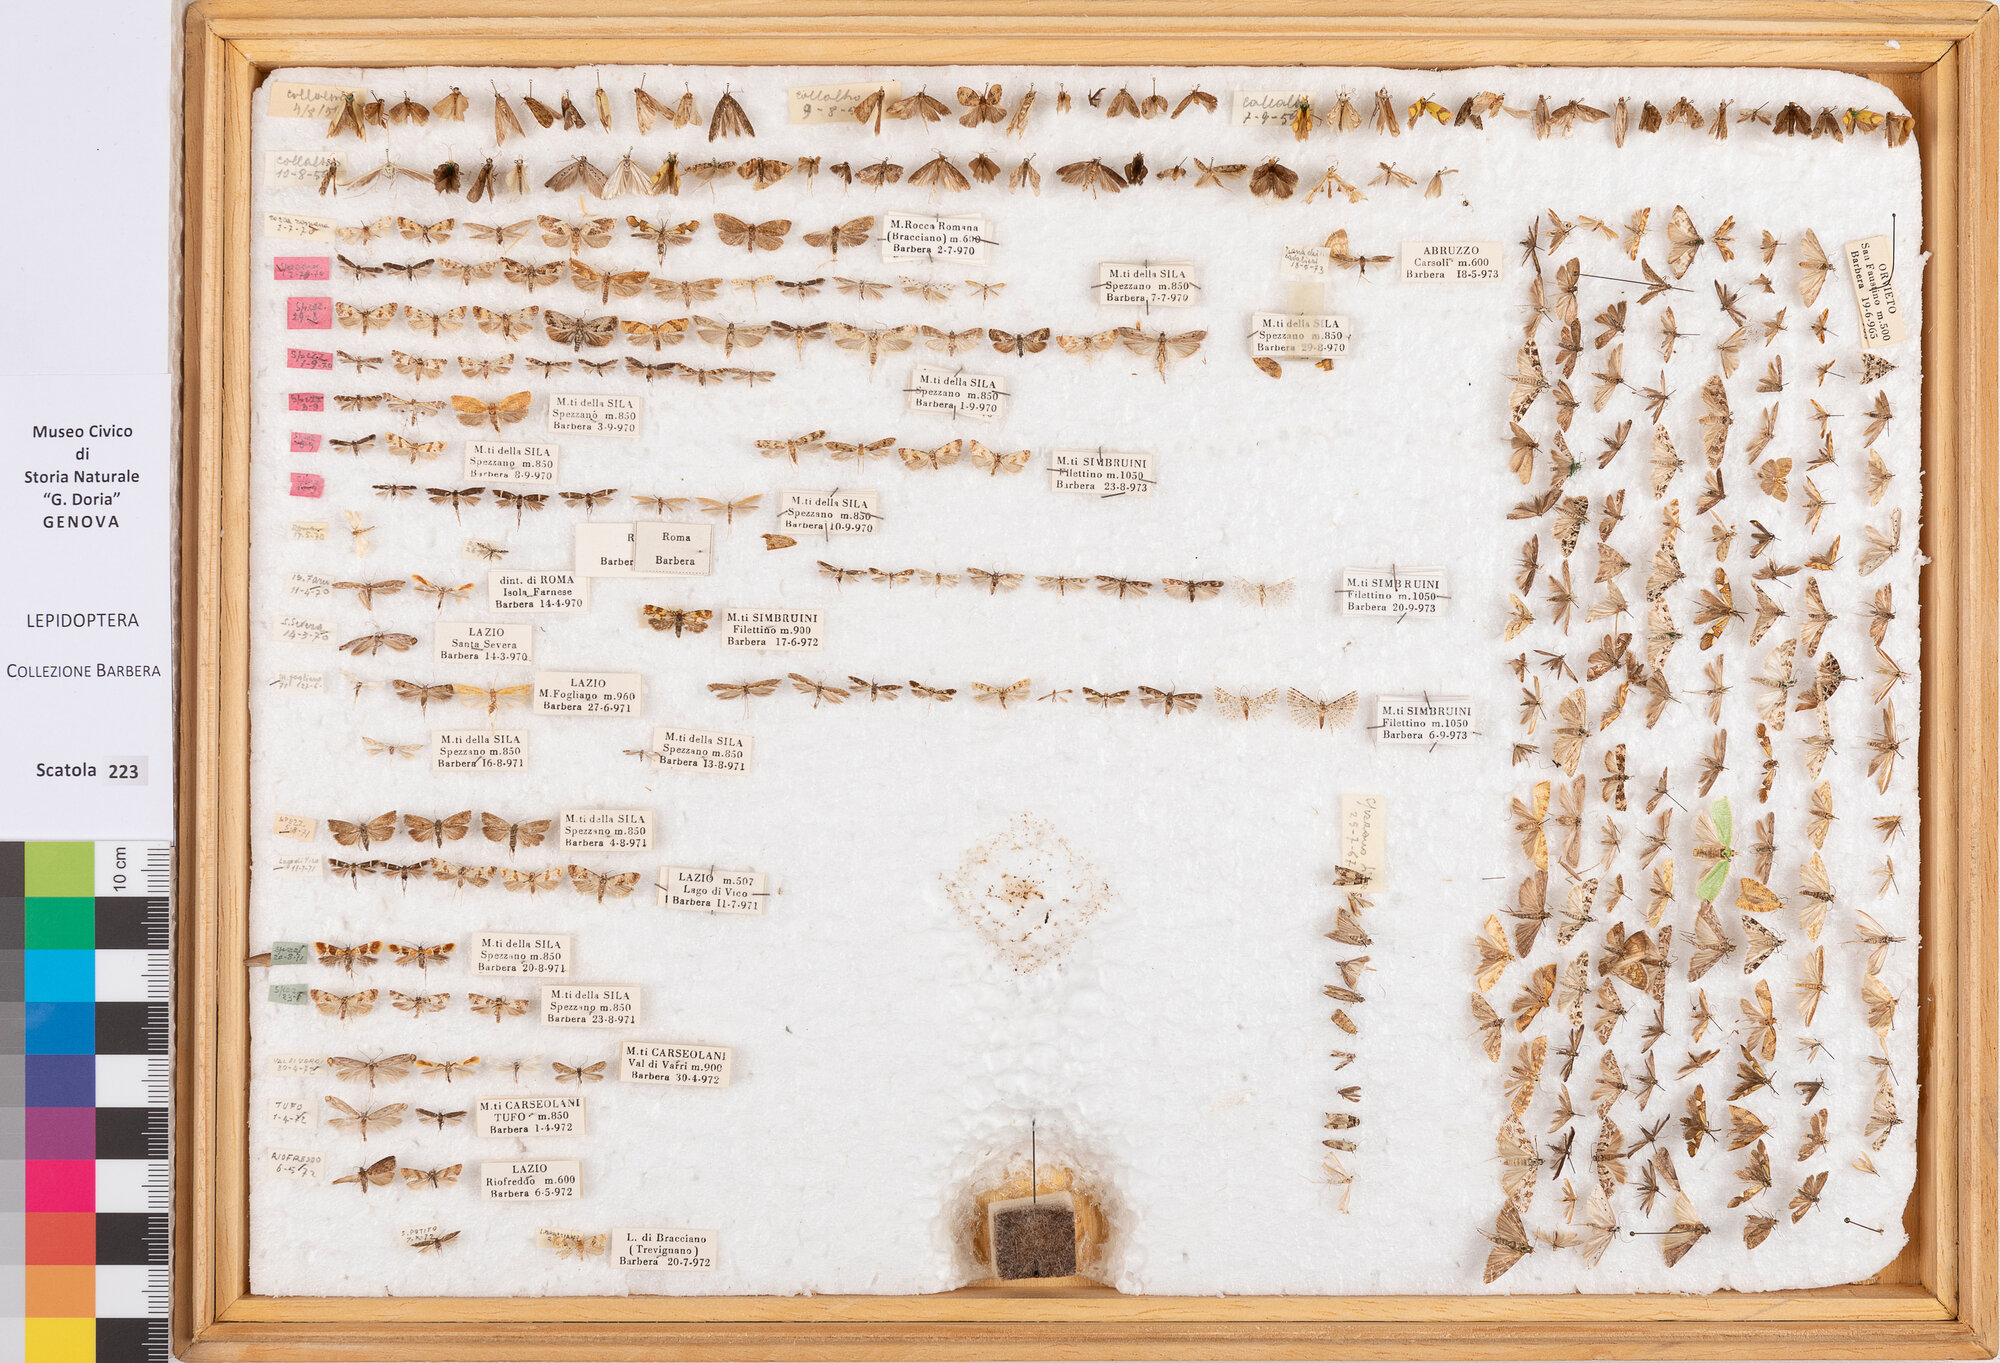 Museo Civico
di
Storia Naturale
“G. Doria”
GENOVA
LEPIDOPTERA
COLLEZIONE BARBERA
Scatola 223
10 cm
collalto
9-8-5
collalto
7-9-5
collalto
10-8-5
M. Rocca Romana
(Bracciano) m.600
Barbera 2-7-970
ABRUZZO
Carsoli m.600
Barbera 18-5-973
ORVIETO
San Faustino m.500
Barbera 19-6-965
M.ti della SILA
Spezzano m.850
Barbera 7-7-970
M.ti della SILA
Spezzano m.850
Barbera 29-8-970
M.ti della SILA
Spezzano m.850
Barbera 1-9-970
M.ti della SILA
Spezzano m.850
Barbera 3-9-970
M.ti della SILA
Spezzano m.850
Barbera 8-9-970
M.ti SIMBRUINI
Filettino m.1050
Barbera 23-8-973
M.ti della SILA
Spezzano m.850
Barbera 10-9-970
R
Barber
Roma
Barbera
11-4-70
dint. di ROMA
Isola Farnese
Barbera 14-4-970
M.ti SIMBRUINI
Filettino m.1050
Barbera 20-9-973
S. Severa
14-3-70
LAZIO
Santa Severa
Barbera 14-3-970
M.ti SIMBRUINI
Filettino m.900
Barbera 17-6-972
LAZIO
M. Fogliano m.960
Barbera 27-6-971
M.ti SIMBRUINI
Filettino m.1050
Barbera 6-9-973
M.ti della SILA
Spezzano m.850
Barbera 16-8-971
M.ti della SILA
Spezzano m.850
Barbera 13-8-971
M.ti della SILA
Spezzano m.850
Barbera 4-8-971
LAZIO m.507
Lago di Vico
Barbera 11-7-971
M.ti della SILA
Spezzano m.850
Barbera 20-8-971
M.ti della SILA
Spezzano m.850
Barbera 23-8-971
30-4-72
M.ti CARSEOLANI
Val di Vafri m.900
Barbera 30-4-972
TUFO
1-4-72
M.ti CARSEOLANI
TUFO m.850
Barbera 1-4-972
RIOFREDDO
6-5/72
LAZIO
Riofreddo m.600
Barbera 6-5-972
L. di Bracciano
(Trevignano)
Barbera 20-7-972